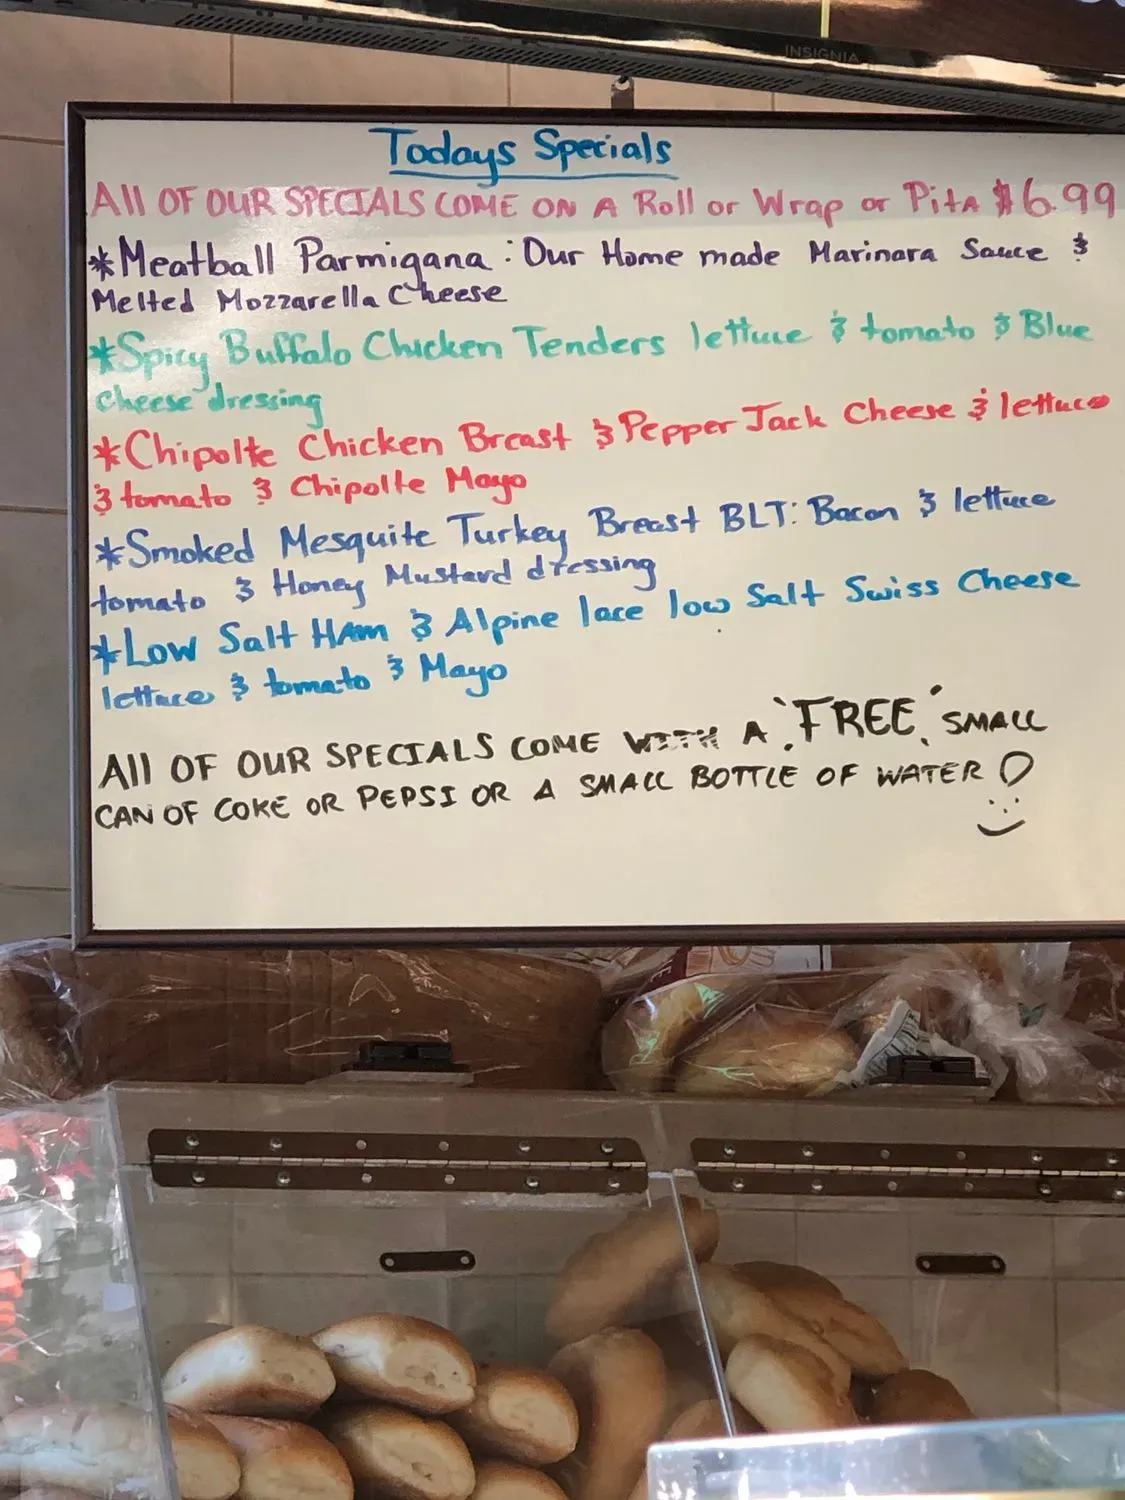 INSIGNIA
Todays Specials
All OF OUR SPECIALS COME ON A Roll or Wrap or Pita $6.99
*Meatball Parmigana : Our Home made Marinara Sauce &
Melted Mozzarella Cheese
*Spicy Buffalo Chicken Tenders lettuce & tomato & Blue
cheese dressing
*Chipolte Chicken Breast & Pepper Jack Cheese & lettuce
& tomato & Chipolte Mayo
*Smoked Mesquite Turkey Breast BLT: Bacon & lettuce
tomato & Honey Mustard dressing
*Low Salt HAm & Alpine lace low Salt Swiss Cheese
lettuce & tomato & Mayo
All OF OUR SPECIALS COME WITH A "FREE" SMALL
CAN OF COKE OR PEPSI OR A SMALL BOTTLE OF WATER